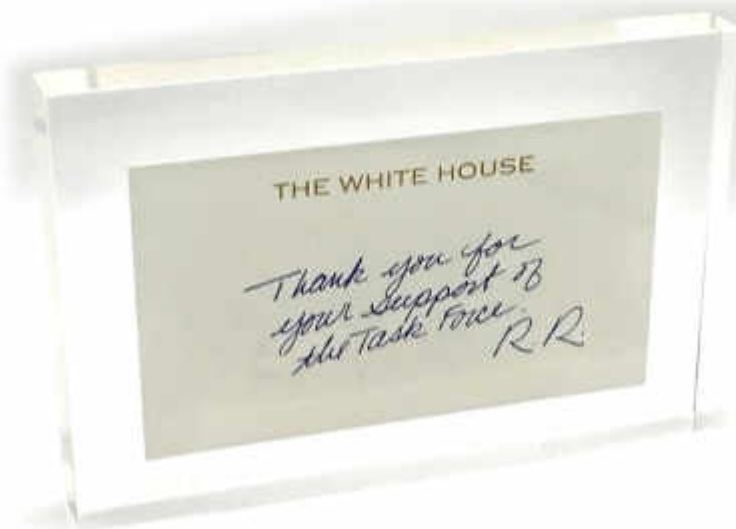 THE WHITE HOUSE
Thank you for
your support of
the Task Force.
R R.